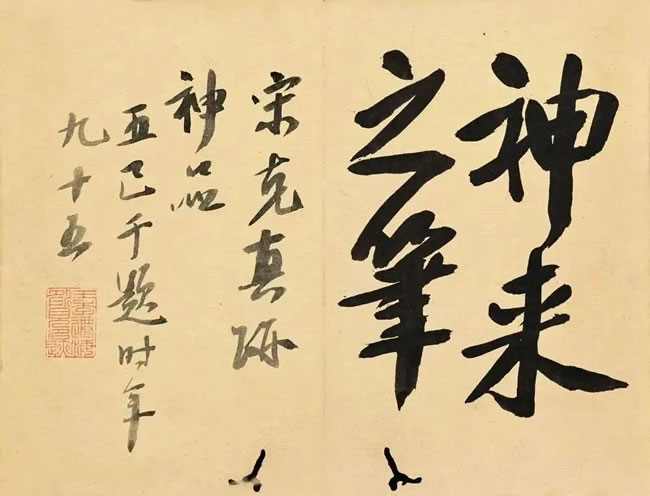 神来
之筆
宋克真跡
神品
王己千题时年
九十五